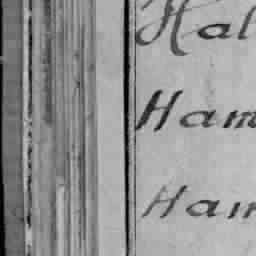 Hal
Ham
Ham